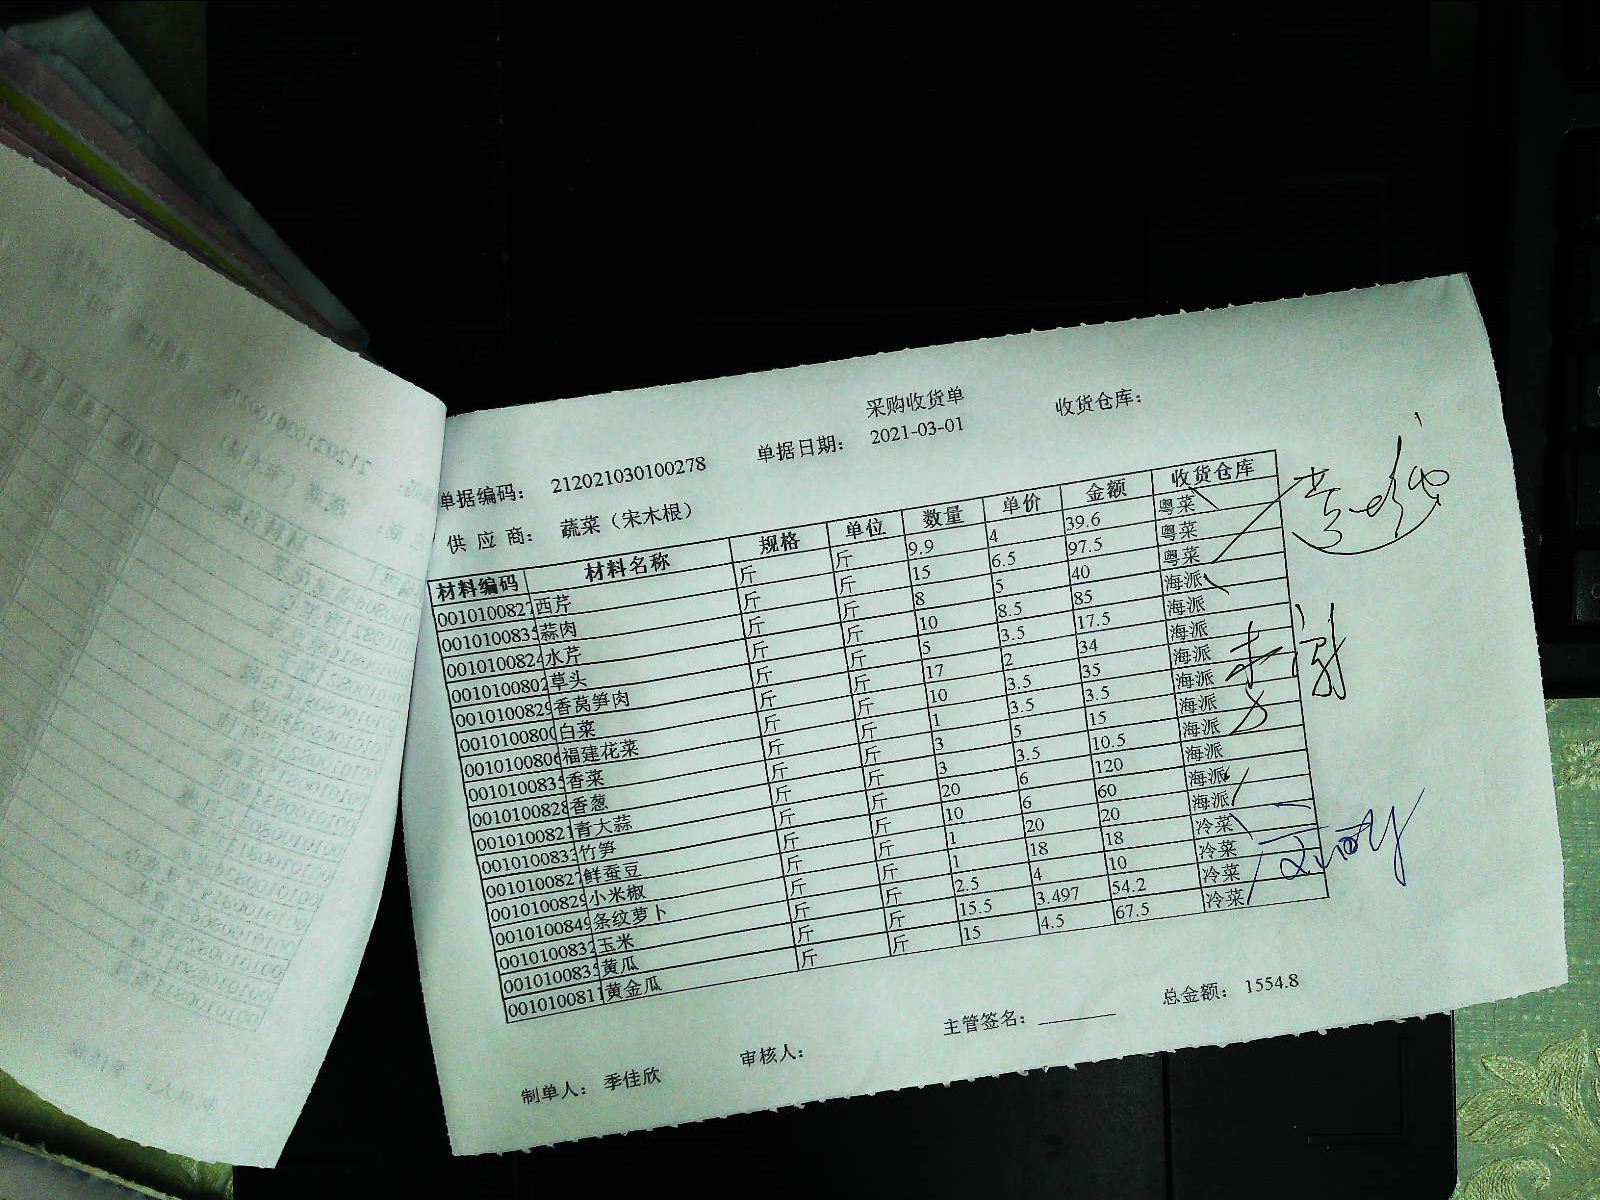 采购收货单
单据编码： 212021030100278 单据日期： 2021-03-01 收货仓库：
供 应 商： 蔬菜（宋木根）
材料编码 材料名称 规格 单位 数量 单价 金额 收货仓库
001010082 西芹 斤 斤 9.9 4 39.6 粤菜
001010083 蒜肉 斤 斤 15 6.5 97.5 粤菜
001010082 水芹 斤 斤 8 5 40 粤菜
001010080 草头 斤 斤 10 8.5 85 海派
001010082 香莴笋肉 斤 斤 5 3.5 17.5 海派
001010080 白菜 斤 斤 17 2 34 海派
001010080 福建花菜 斤 斤 10 3.5 35 海派
001010083 香菜 斤 斤 1 3.5 3.5 海派
001010082 香葱 斤 斤 3 5 15 海派
001010082 青大蒜 斤 斤 3 3.5 10.5 海派
001010083 竹笋 斤 斤 20 6 120 海派
001010082 鲜蚕豆 斤 斤 10 6 60 海派
001010082 小米椒 斤 斤 1 20 20 海派
001010084 条纹萝卜 斤 斤 1 18 18 冷菜
001010083 玉米 斤 斤 2.5 4 10 冷菜
001010083 黄瓜 斤 斤 15.5 3.497 54.2 冷菜
001010081 黄金瓜 斤 斤 15 4.5 67.5 冷菜
总金额： 1554.8
制单人： 季佳欣 审核人： 主管签名：